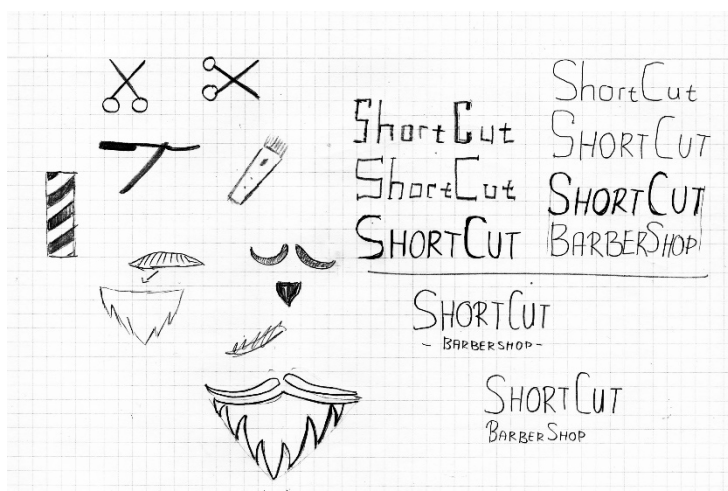 ShortCut
ShortCut
SHORTCUT
ShortCut
SHORTCUT
SHORTCUT
BARBERSHOP
SHORTCUT
- BARBERSHOP -
SHORTCUT
BARBERSHOP